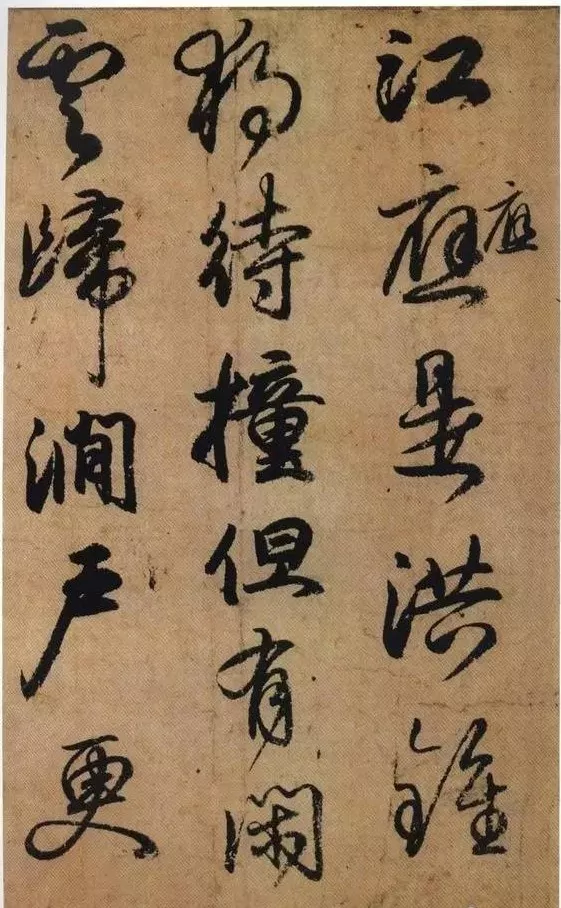 江應應是洪鐘
獨待撞但有閑
雲歸澗戶更